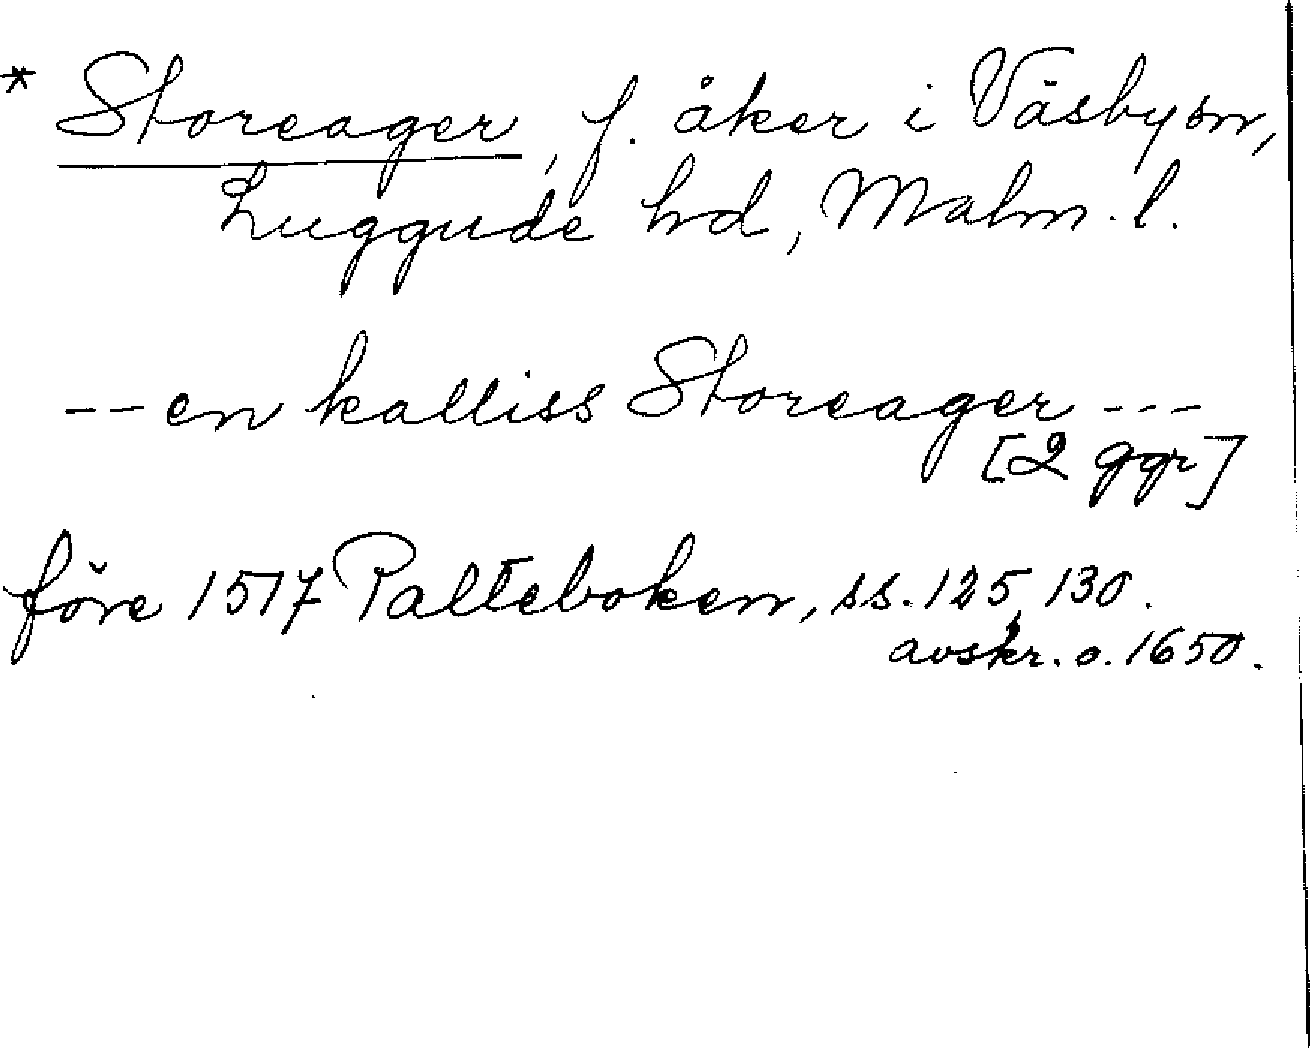 * Storeager, f. åker i Väsby sn,
Luggude hd, Malm. l.
-- en kalliss Storeager ---
[2 ggr]
före 1517 Palteboken, ss. 125, 130.
avskr. o. 1650.